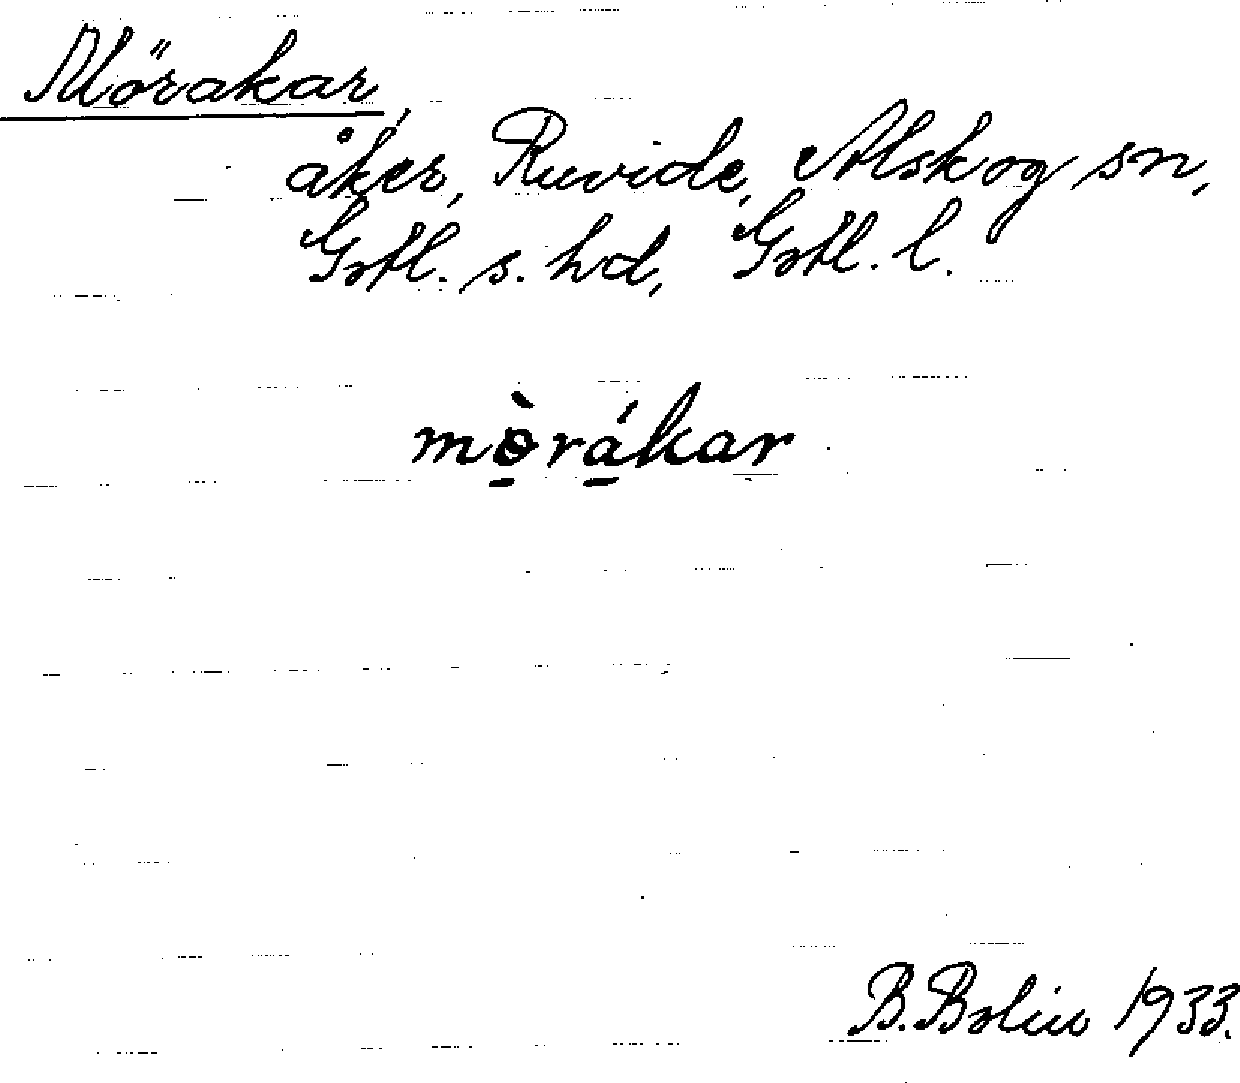 Mörakar,
åker, Ruvide, Alskog sn,
Gotl. s. hd, Gotl. l.
mə̀rákar
B. Bolin 1933.